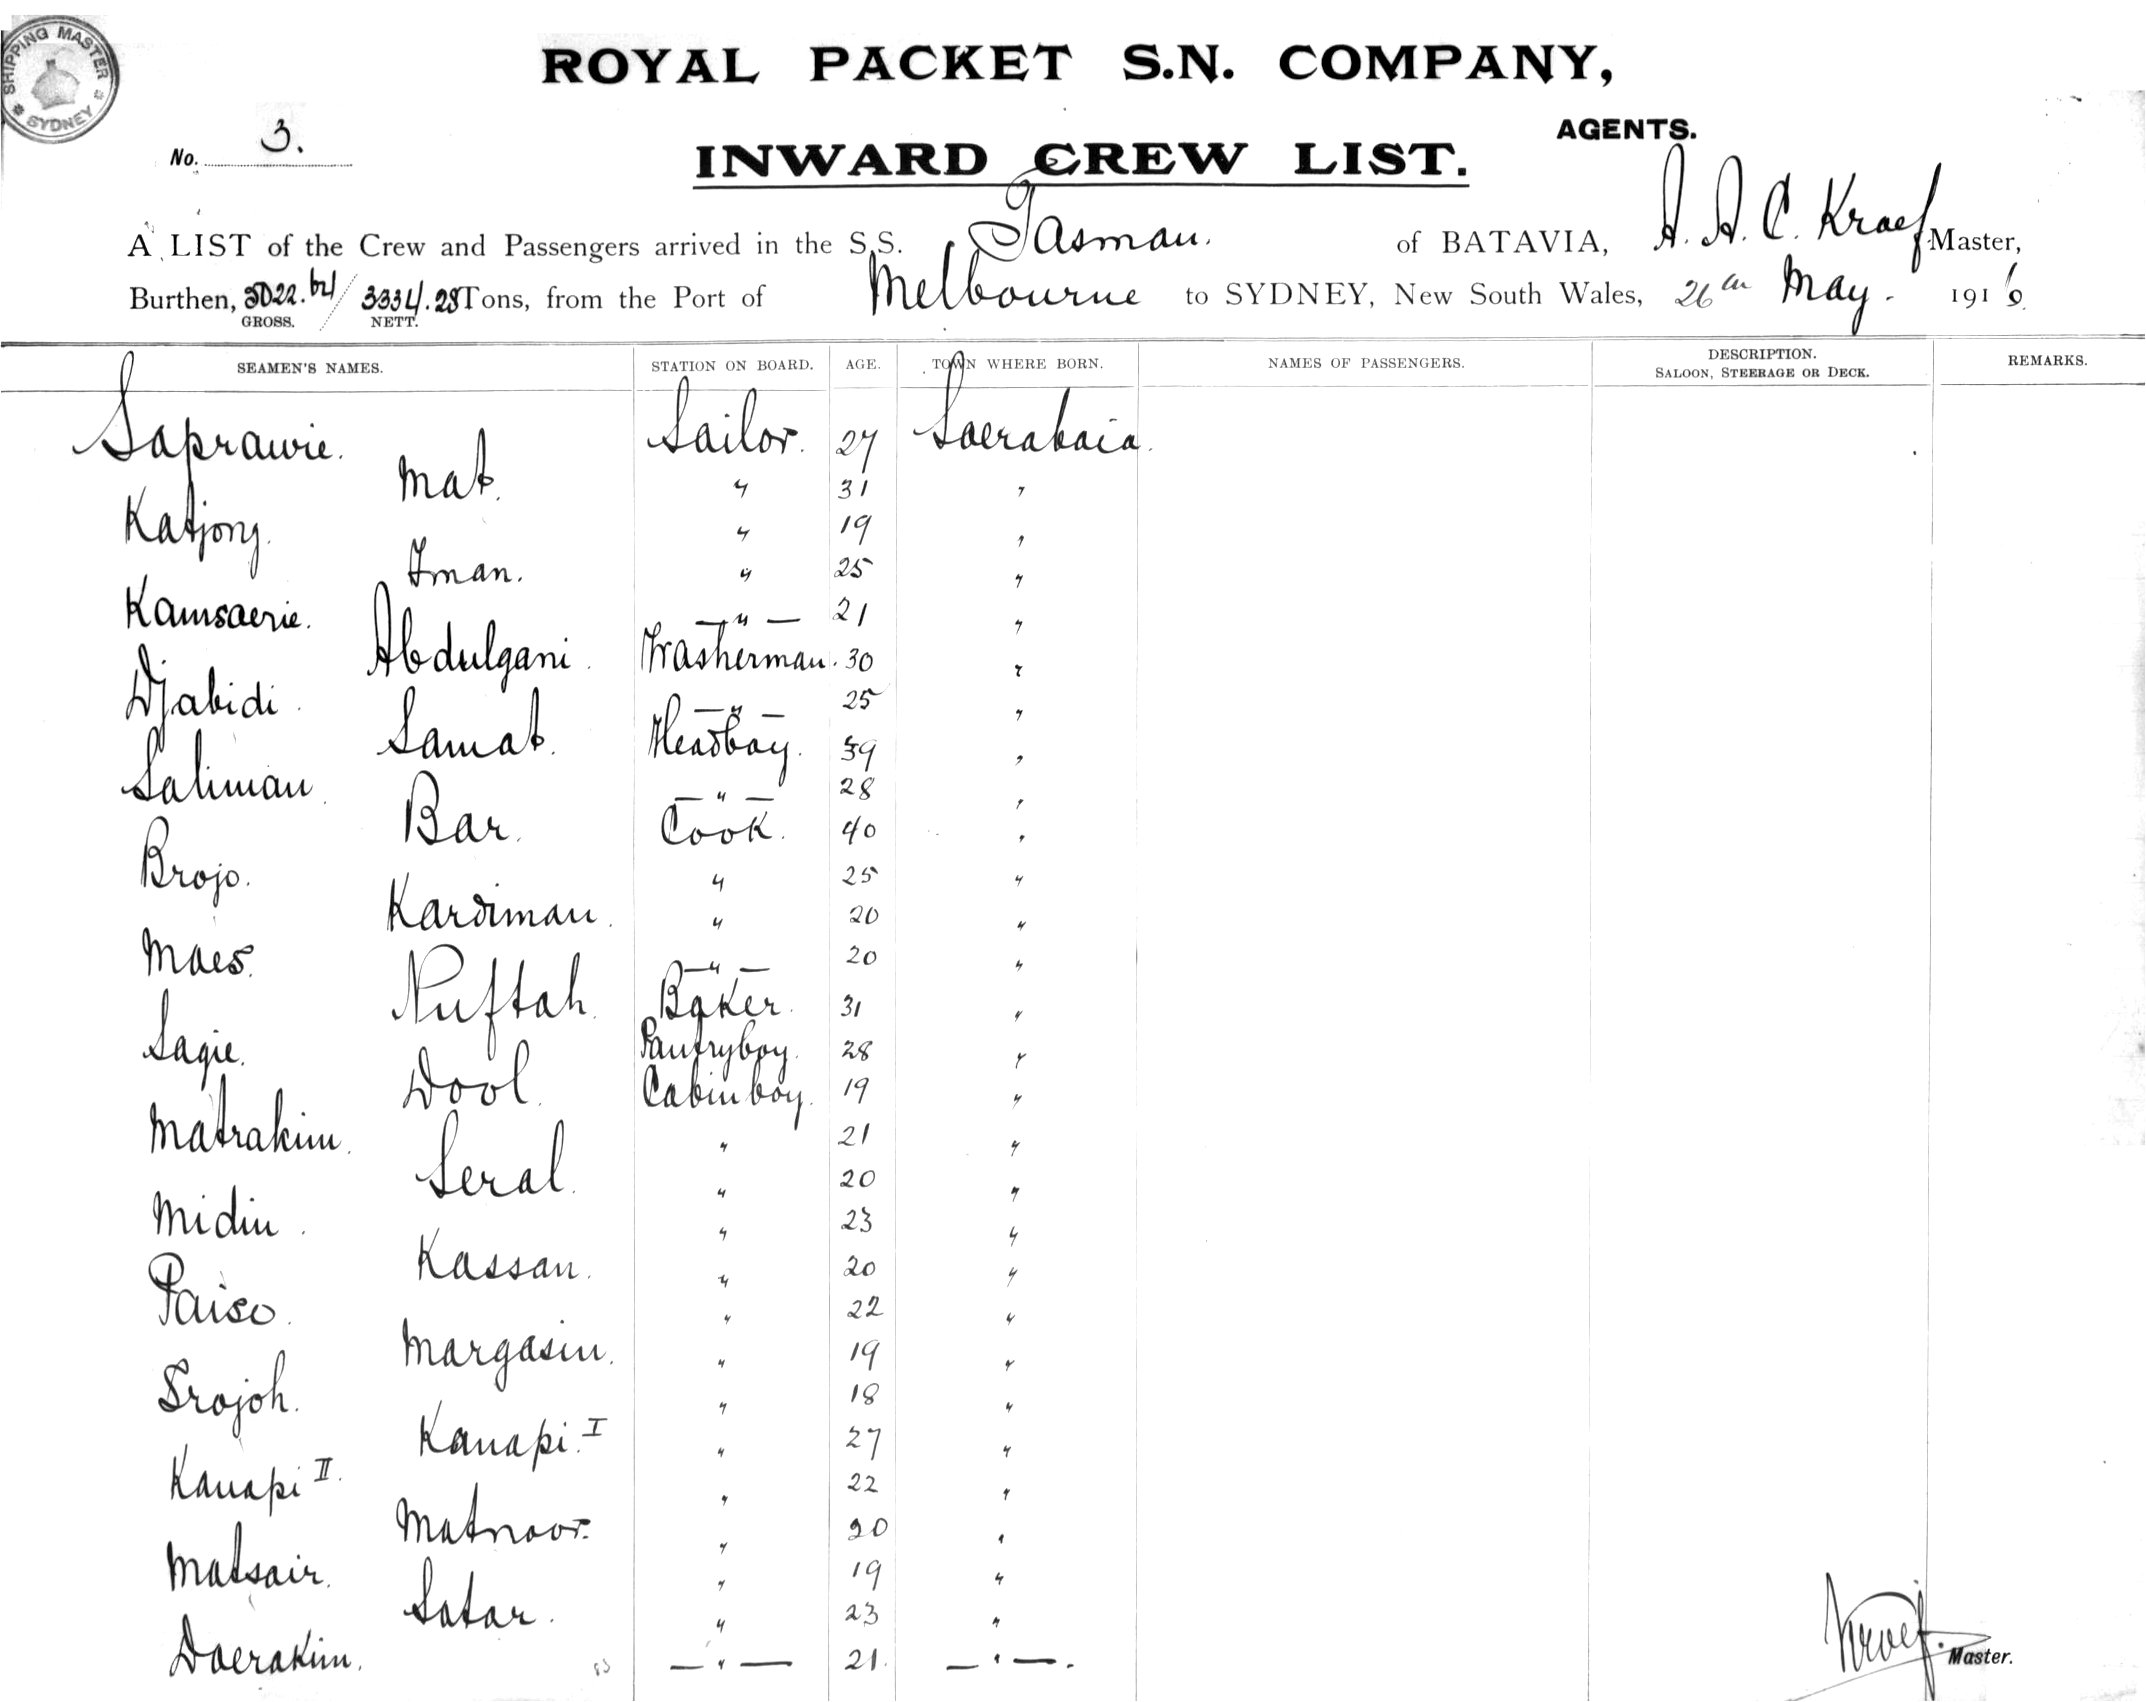 SHIPPING MASTER
SYDNEY
ROYAL PACKET S.N. COMPANY,
AGENTS.
No. 3.
INWARD CREW LIST.
A LIST of the Crew and Passengers arrived in the S.S. Tasman. of BATAVIA, A. A. C. Kraef Master,
Burthen, 5022. / 3334.28 Tons, from the Port of Melbourne to SYDNEY, New South Wales, 26th May. 1916
GROSS. NETT.
SEAMEN'S NAMES. STATION ON BOARD. AGE. TOWN WHERE BORN. NAMES OF PASSENGERS. DESCRIPTION. SALOON, STEERAGE OR DECK. REMARKS.
Saprawie. Sailor. 27 Soerabaia.
Mat. " 31 "
Katjong. " 19 "
Iman. " 25 "
Kamsaerie. — " — 21 "
Abdulgani. Washerman. 30 "
Djabidi. — " — 25 "
Samat. Headboy. 39 "
Saliman. — " — 28 "
Bar. Cook. 40 "
Brojo. " 25 "
Kardiman. " 20 "
Maes. — " — 20 "
Nuftah. Baker. 31 "
Sagie. Pantryboy. 28 "
Dool. Cabinboy. 19 "
Matrakim. " 21 "
Seral. " 20 "
Midin. " 23 "
Kassan. " 20 "
Paiso. " 22 "
Margasin. " 19 "
Srojoh. " 18 "
Kanapi I " 27 "
Kanapi II. " 22 "
Matnoor. " 20 "
Matsair. " 19 "
Satar. " 23 "
Doerakim. — " — 21. — " —.
Kraef. Master.